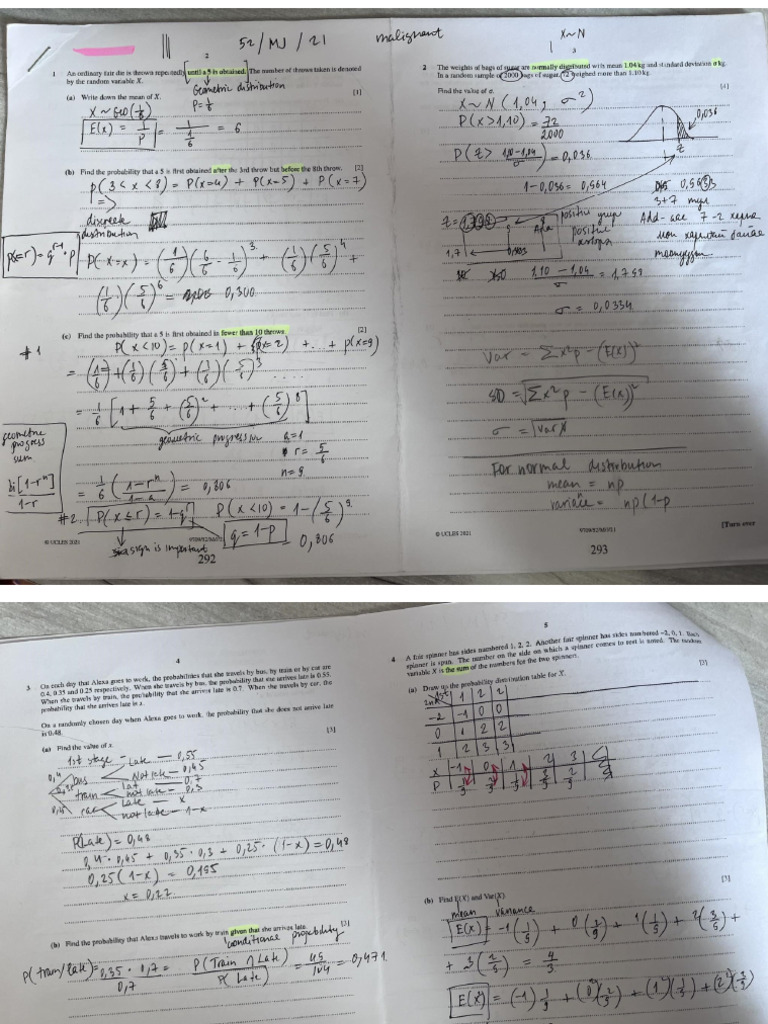 52/MJ/21
malignant
X~N
2
1 An ordinary fair die is thrown repeatedly until a 5 is obtained. The number of throws taken is denoted
by the random variable X.
Geometric distribution
(a) Write down the mean of X. [1]
P=1/6
X~Geo(1/6)
E(X) = 1/P = 1/(1/6) = 6
(b) Find the probability that a 5 is first obtained after the 3rd throw but before the 8th throw. [2]
P(3<x<8) = P(x=4) + P(x=5) + P(x=7)
=>
discrete
distribution
P(x=r) = q^(r-1) · p
P(x=x) = (1/6)(6/6 - 1/6)^3 + (1/6)(5/6)^4 +
(1/6)(5/6)^6 = 0,300
(c) Find the probability that a 5 is first obtained in fewer than 10 throws. [2]
#1
P(x<10) = P(x=1) + P(x=2) + .. + P(x=9)
= (1/6)+(1/6)(5/6)+(1/6)(5/6)^3 ....
= 1/6 [1 + 5/6 + (5/6)^2 + ... + (5/6)^8]
geometric progression
a=1
r = 5/6
n=9
geometric
progress
sum
b1[1-r^n]
1-r
= 1/6 (1-r^n / 1-r) = 0,806
#2. P(x≤r) = 1-q^r
P(x<10) = 1-(5/6)^9
q = 1-p
= 0,806
sign is important
© UCLES 2021
292
2 The weights of bags of sugar are normally distributed with mean 1.04 kg and standard deviation σ kg.
In a random sample of 2000 bags of sugar, 72 weighed more than 1.10 kg.
Find the value of σ. [4]
X~N(1,04; σ^2)
P(x>1,10) = 72/2000
0,036
P(Z > 1,10-1,04/σ) = 0,036
z
1-0,036 = 0,964
3+7
1,7
1,10 - 1,04 / σ = 1,798
σ = 0,0334
Var = Σx²p - (E(x))²
SD = √Σx²p - (E(x))²
σ = √Var
For normal distribution
mean = np
variance = np(1-p
© UCLES 2021
[Turn over
293
4
3 On each day that Alexa goes to work, the probabilities that she travels by bus, by train or by car are
0.4, 0.35 and 0.25 respectively. When she travels by bus, the probability that she arrives late is 0.55.
When she travels by train, the probability that she arrives late is 0.7. When she travels by car, the
probability that she arrives late is x.
On a randomly chosen day when Alexa goes to work, the probability that she does not arrive late
is 0.48.
(a) Find the value of x. [3]
1st stage - Late - 0,55
0,4 bus Not late - 0,45
0,35 train Lat - 0,7
not late - 0,3
car Late - x
not late - 1-x
P(Late) = 0,48
0,4·0,45 + 0,35·0,3 + 0,25·(1-x) = 0,48
0,25(1-x) = 0,195
x = 0,22
(b) Find the probability that Alexa travels to work by train given that she arrives late. [3]
conditional probability
P(train/Late) = 0,35·0,7/0,7 = P(Train ∩ Late)/P(Late) = 0,471
5
4 A fair spinner has sides numbered 1, 2, 2. Another fair spinner has sides numbered −2, 0, 1. Each
spinner is spun. The number on the side on which a spinner comes to rest is noted. The random
variable X is the sum of the numbers for the two spinners.
(a) Draw up the probability distribution table for X. [3]
1 2 2
-2 -1 0 0
0 1 2 2
1 2 3 3
X -1 0 1 2 3
P
(b) Find E(X) and Var(X). [3]
mean variance
E(x) = -1(1/9) + 0(2/9) + 1(1/9) + 2(3/9) +
+ 3(2/9) = 4/3